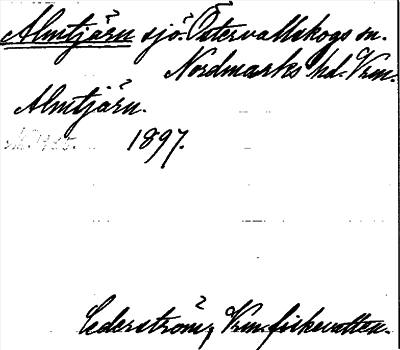 Almtjärn sjö. Östervallskogs sn.
Nordmarks hd. Vrm.
Almtjärn.
1897.
Cederström, Vrm fiskevatten.